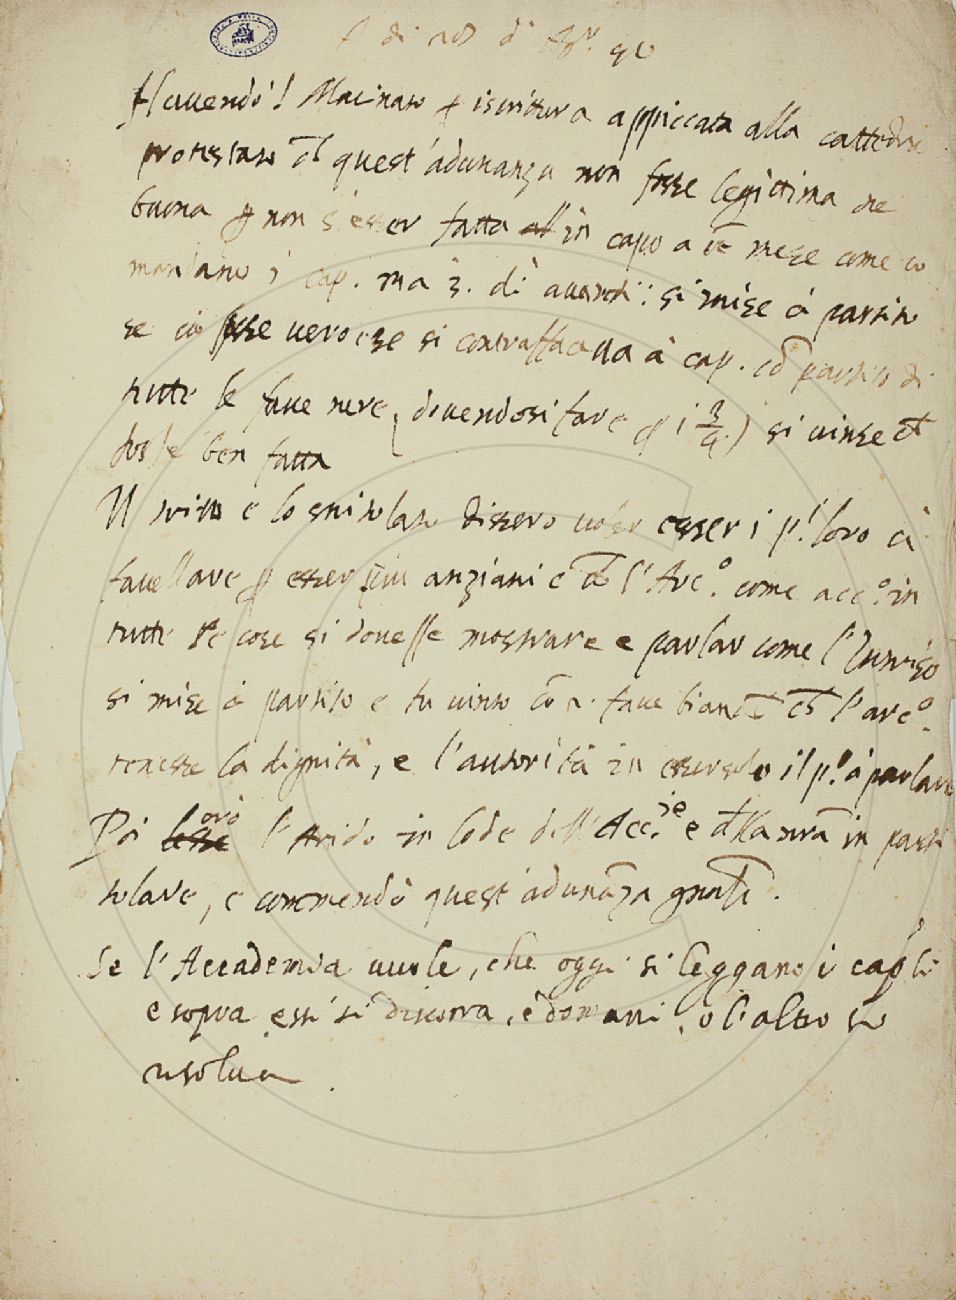 A di 28 d' Apr. 90
Havendo 'l Macinato p iscrittura appiccata alla cattedra
protestato ch quest'adunanza non fosse legittima ne
buona p non s'esser fatta in capo a un mese come co
mandano i cap. ma 3. dì avanti: si mise à partito
se ciò fosse vero e se si contraffaceva à cap. ed partito di
tutte le fave nere (dovendosi fare p i 3/4) si vinse ch
fosse ben fatta
Il trito e lo gnitolato dissero voler esser i p.i loro à
favellare p esser più anziani e ch l'Arc.o come acc.o in
tutte le cose si dovesse mostrare e parlar come l'
si mise à partito e fu vinto co 2. fave bianche ch l'arc.o
tenesse la dignità, e l'autorità in esser il p.o à parlare
Poi lodò l'Arido in lode dell'Acc.ie e della nra in parti
colare, e commendò quest'adunanza gnalte.
Se l'Accademia vuole, che oggi si leggano i capli
e sopra essi si discorra, e domani, o l'altro si
risolva.